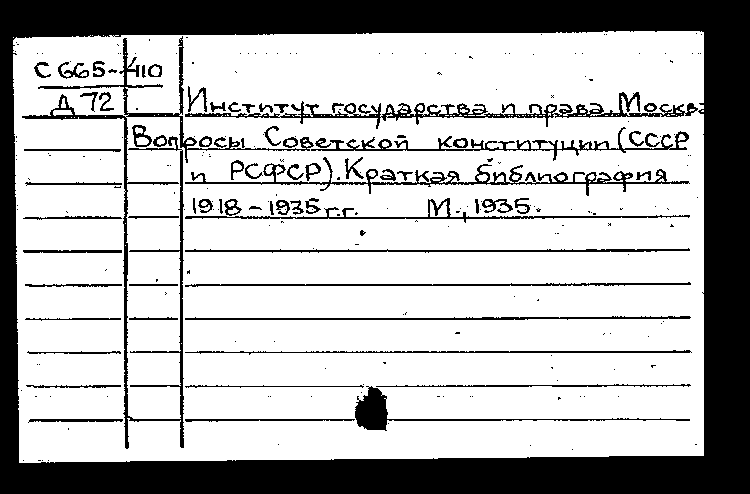 С 665-410
Д 72
Институт государства и права. Москва
Вопросы Советской конституции (СССР
и РСФСР). Краткая библиография
1918-1935 г.г. М., 1935.